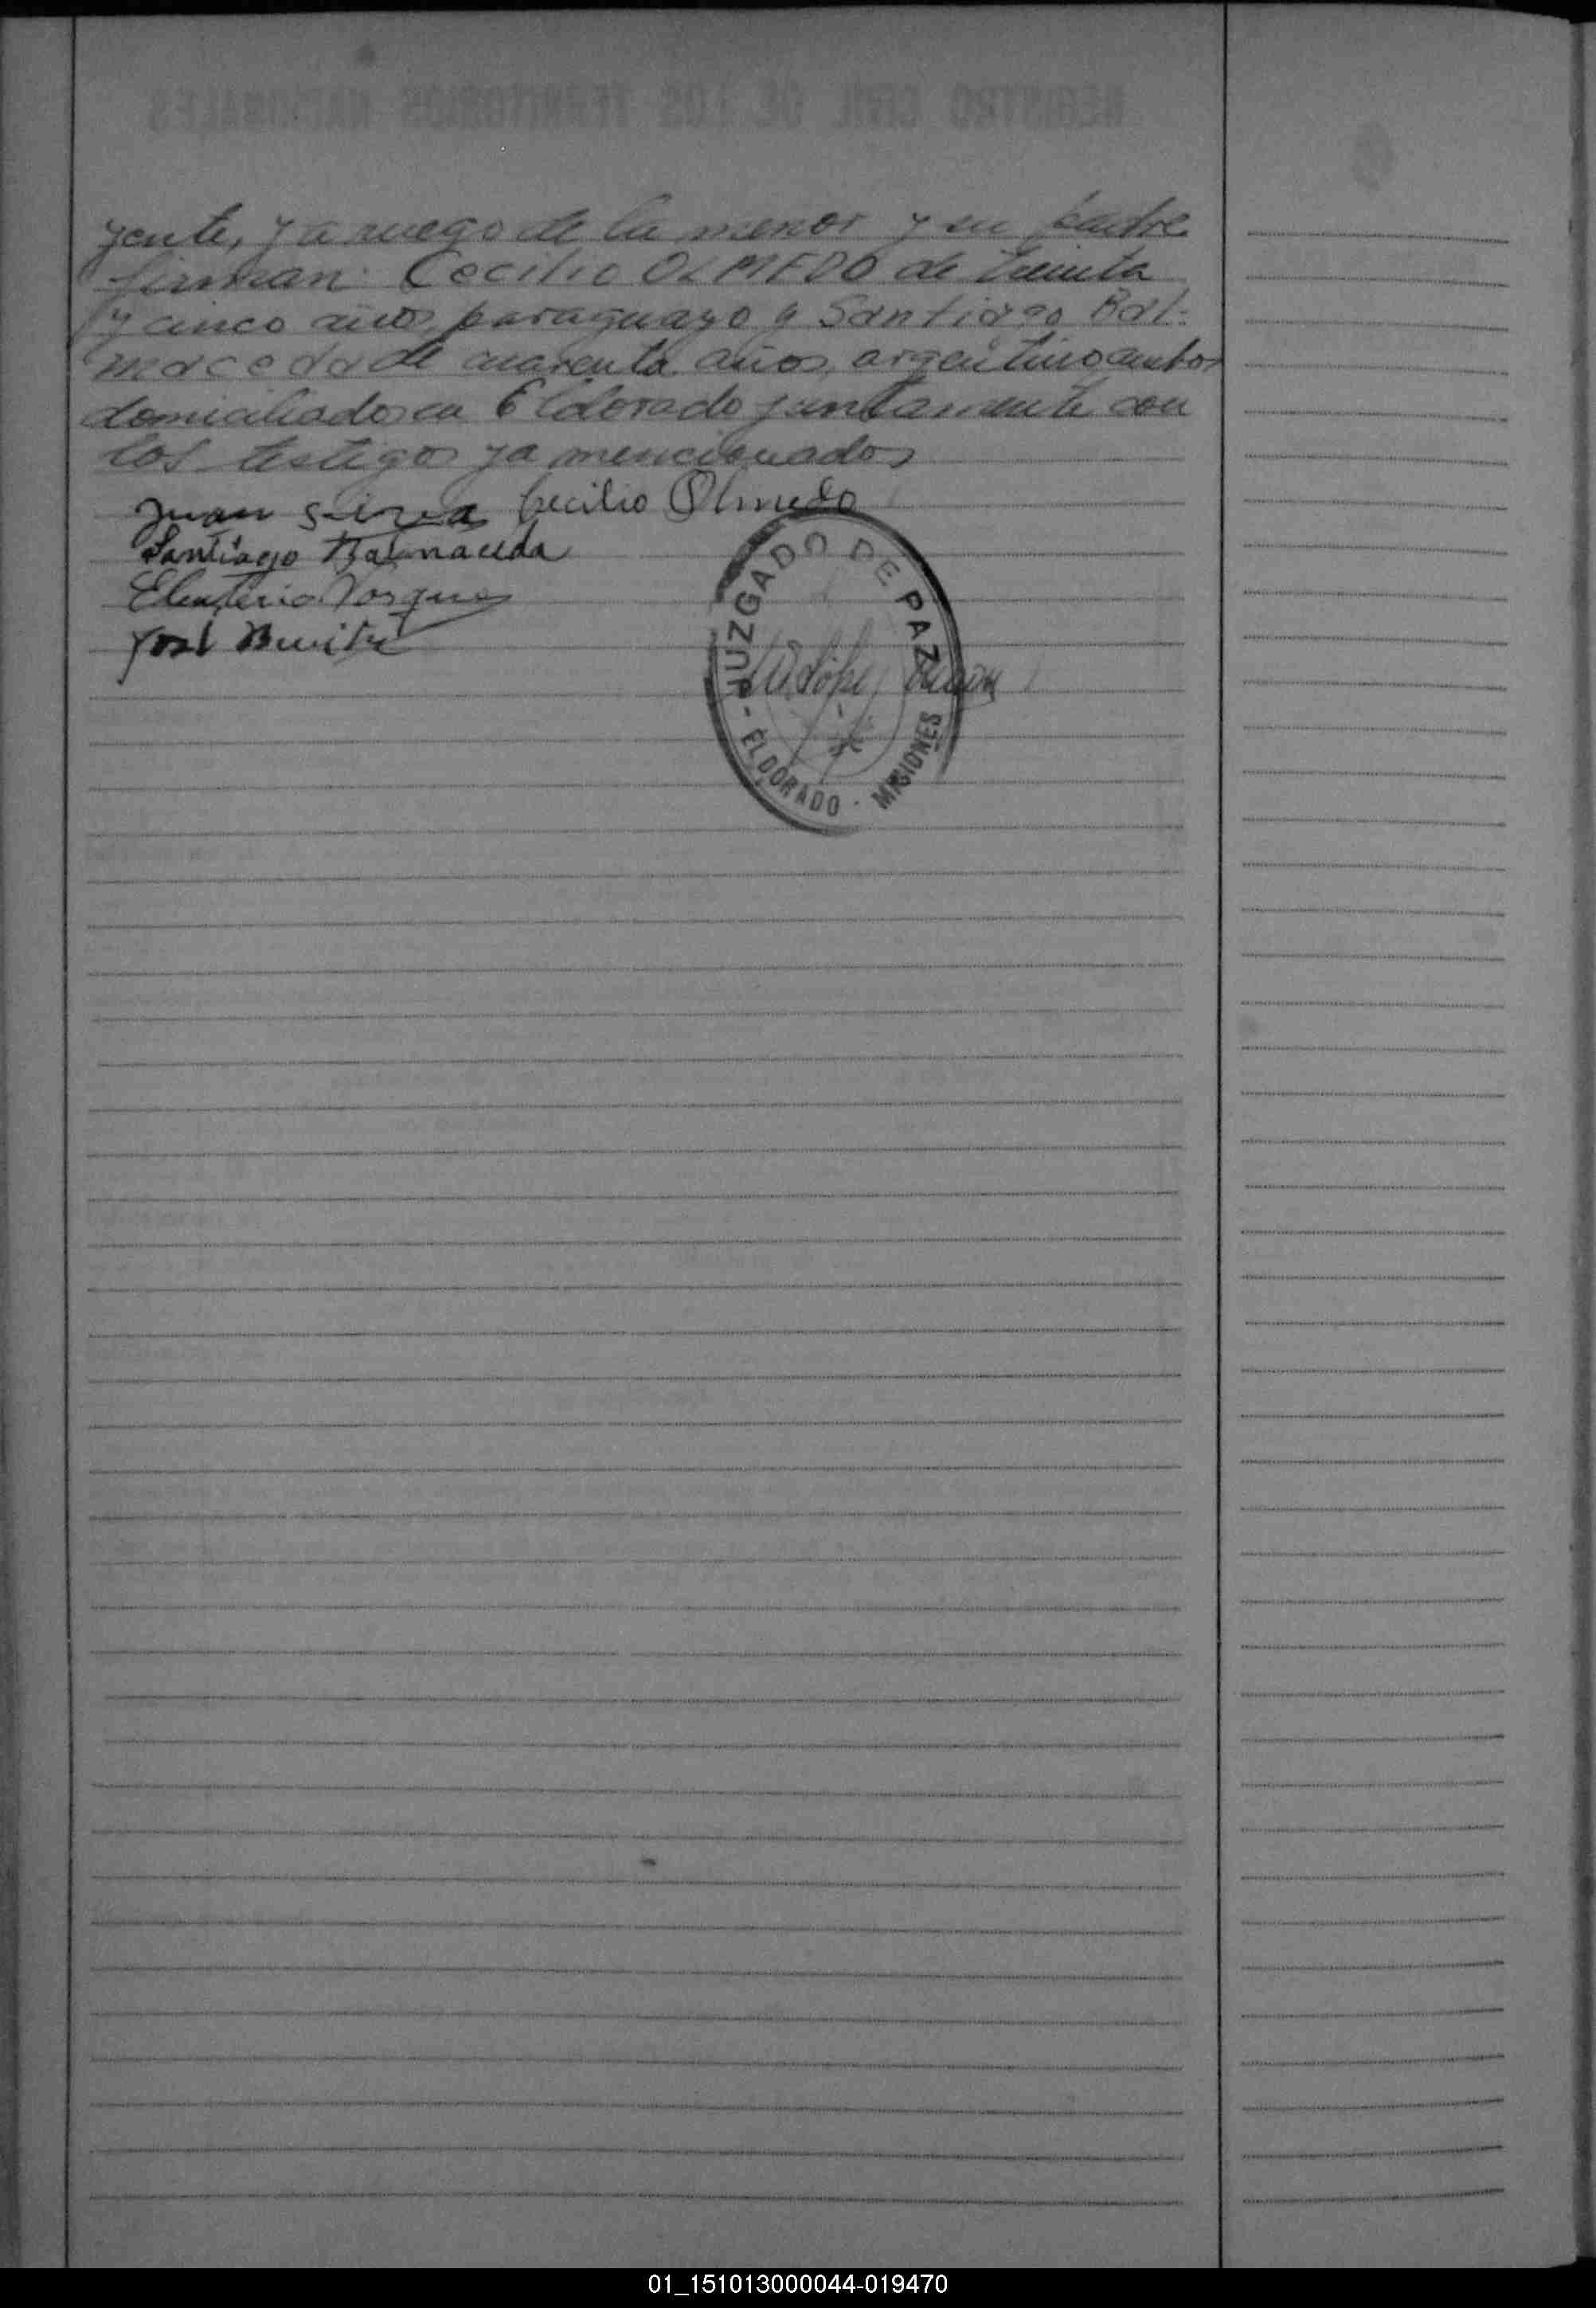 yente, y a ruego de la menor y su padre
firman: Cecilio OLMEDO de treinta
y cinco años, paraguayo y Santiago Bal-
maceda de cuarenta años, argentino ambos
domiciliados en Eldorado juntamente con
los testigos ya mencionados
Juan Cecilio Olmedo
Santiago Balmaceda
Eleuterio Vasquez
José Benitez
JUZGADO DE PAZ
- ELDORADO - MISIONES
01_151013000044-019470